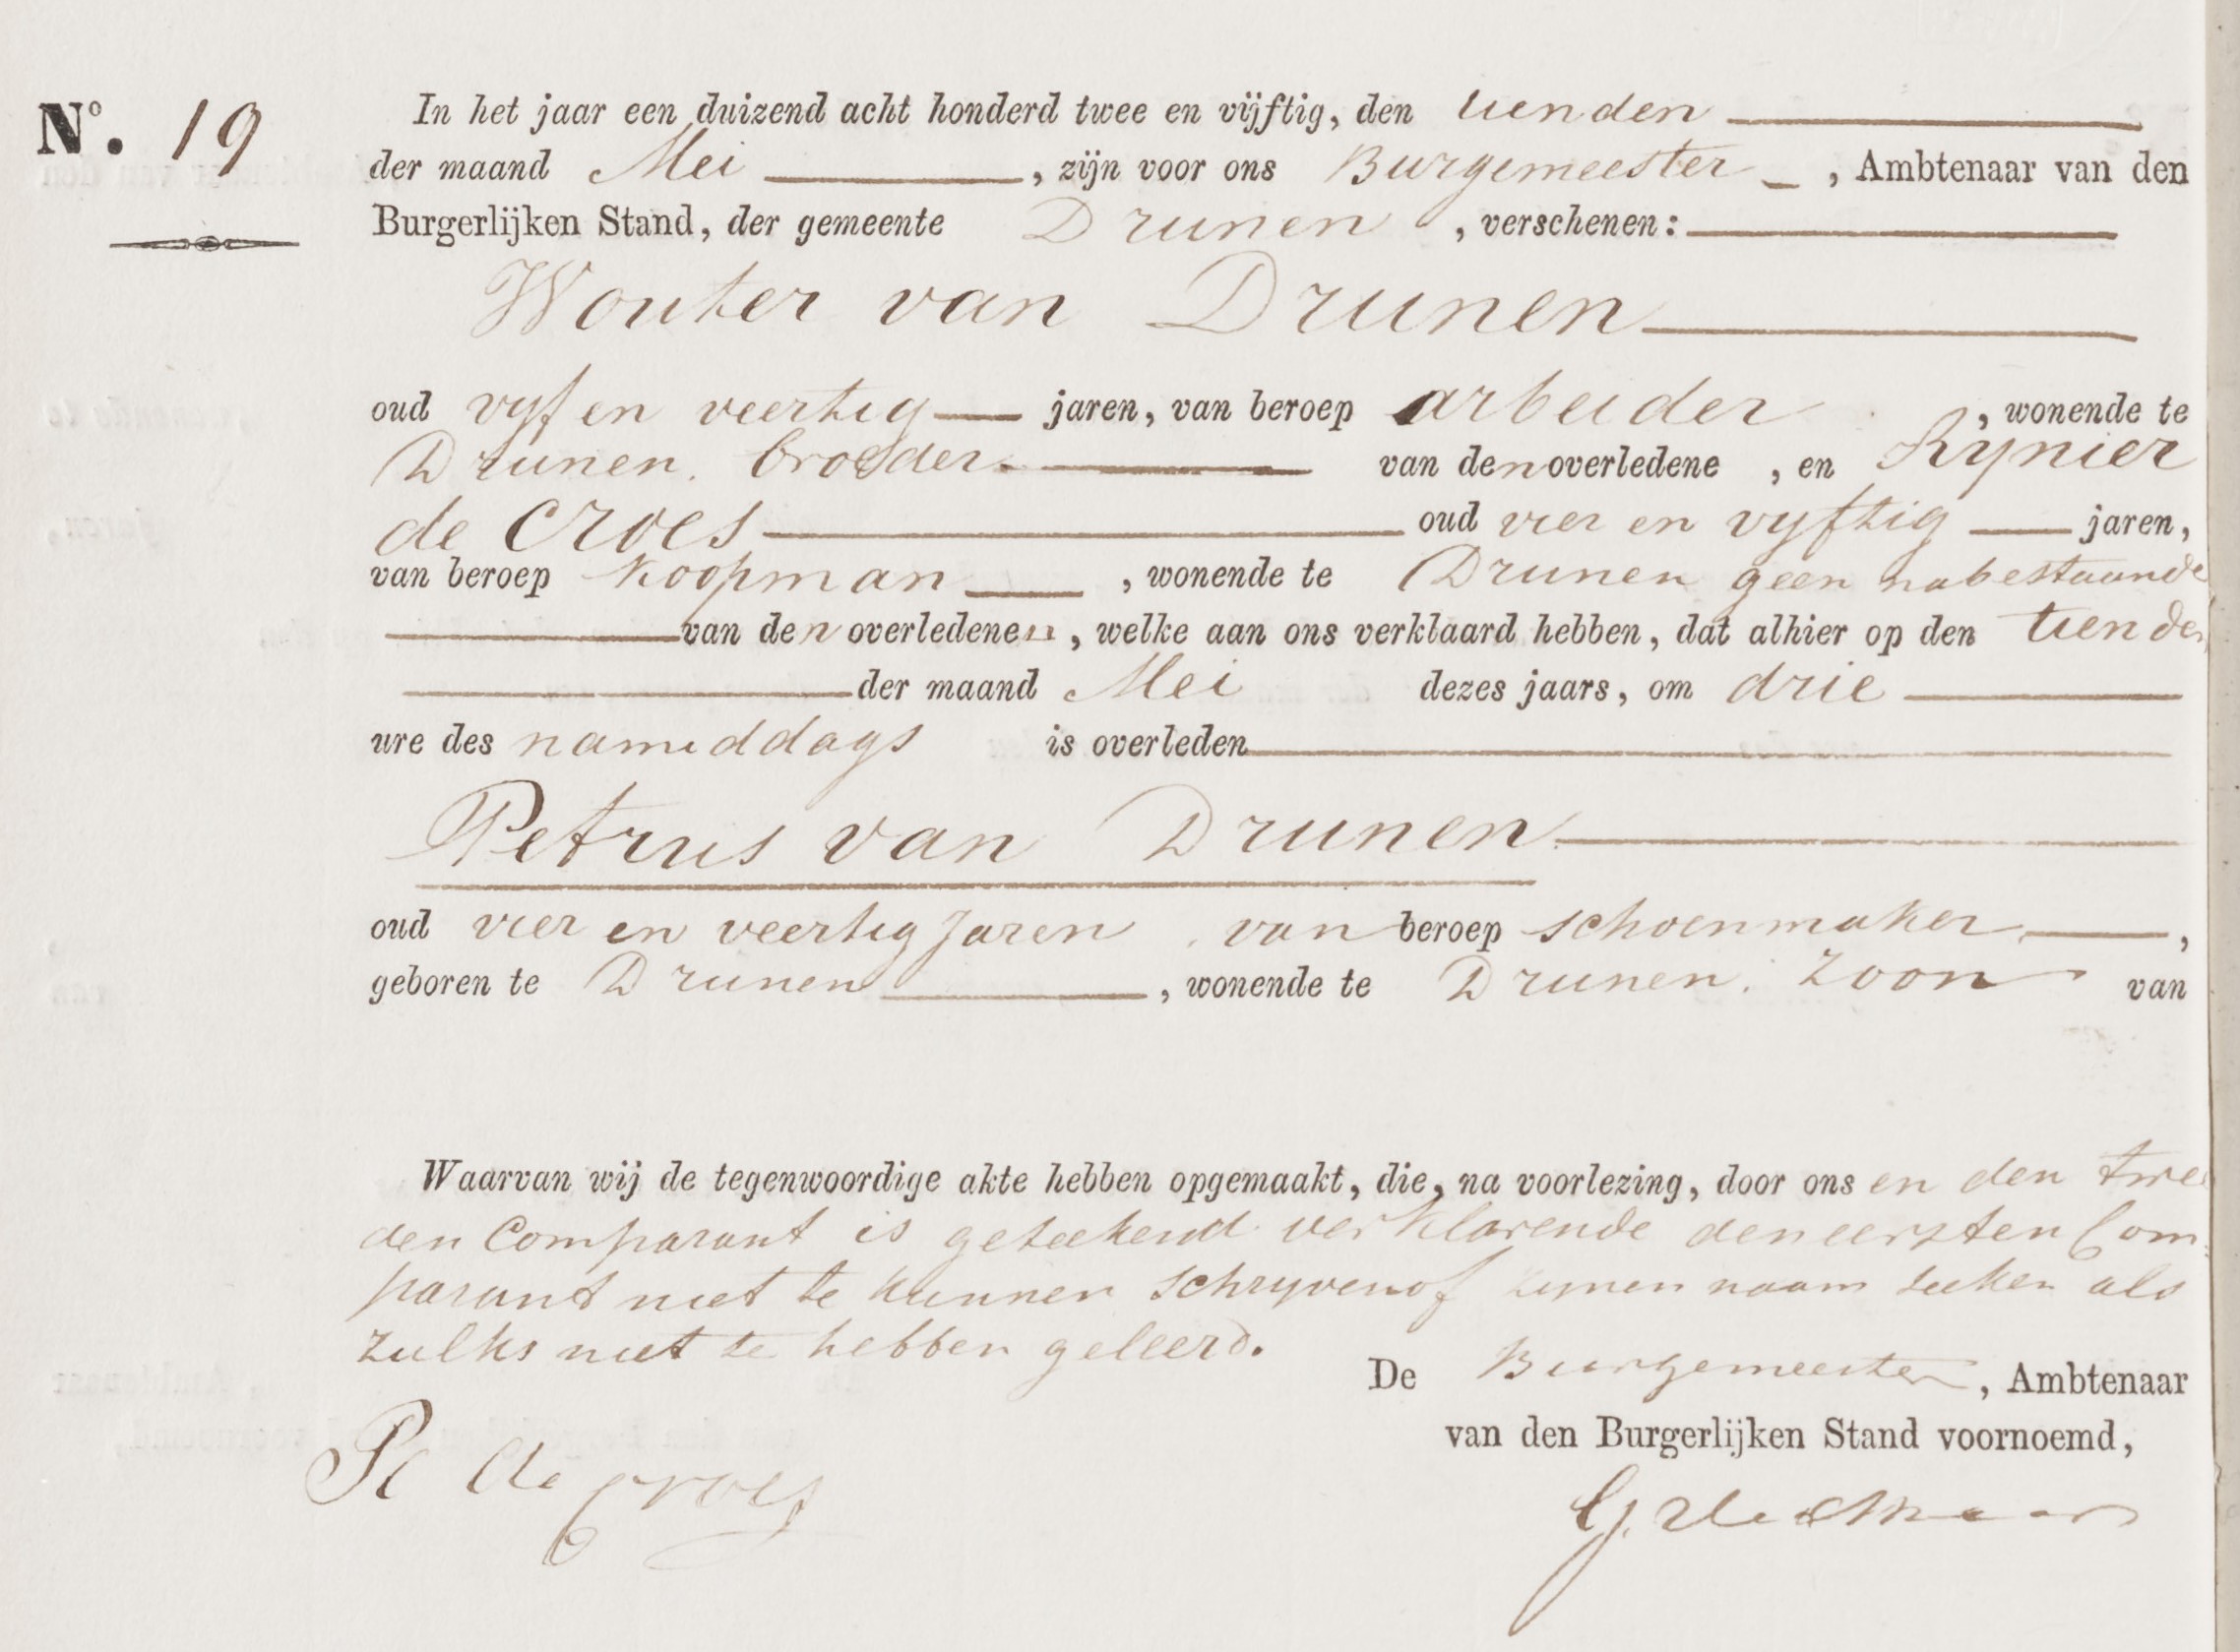 No. 19
In het jaar een duizend acht honderd twee en vijftig, den tienden
der maand Mei, zijn voor ons Burgemeester, Ambtenaar van den
Burgerlijken Stand, der gemeente Drunen, verschenen:
Wouter van Drunen
oud vyf en veertig jaren, van beroep arbeider, wonende te
Drunen. broeder. van den overledene, en Rynier
de Croes oud vier en vyftig jaren,
van beroep Koopman, wonende te Drunen geen nabestaande
van den overledenen, welke aan ons verklaard hebben, dat alhier op den tienden
der maand Mei dezes jaars, om drie
ure des namiddags is overleden
Petrus van Drunen
oud vier en veertig Jaren van beroep schoenmaker,
geboren te Drunen, wonende te Drunen. zoon van
Waarvan wij de tegenwoordige akte hebben opgemaakt, die, na voorlezing, door ons en den twee
den Comparant is geteekend verklarende den eersten Com
parant niet te kunnen schryven of zynen naam teeken als
zulks niet te hebben geleerd.
De Burgemeester, Ambtenaar
van den Burgerlijken Stand voornoemd,
R de Croes